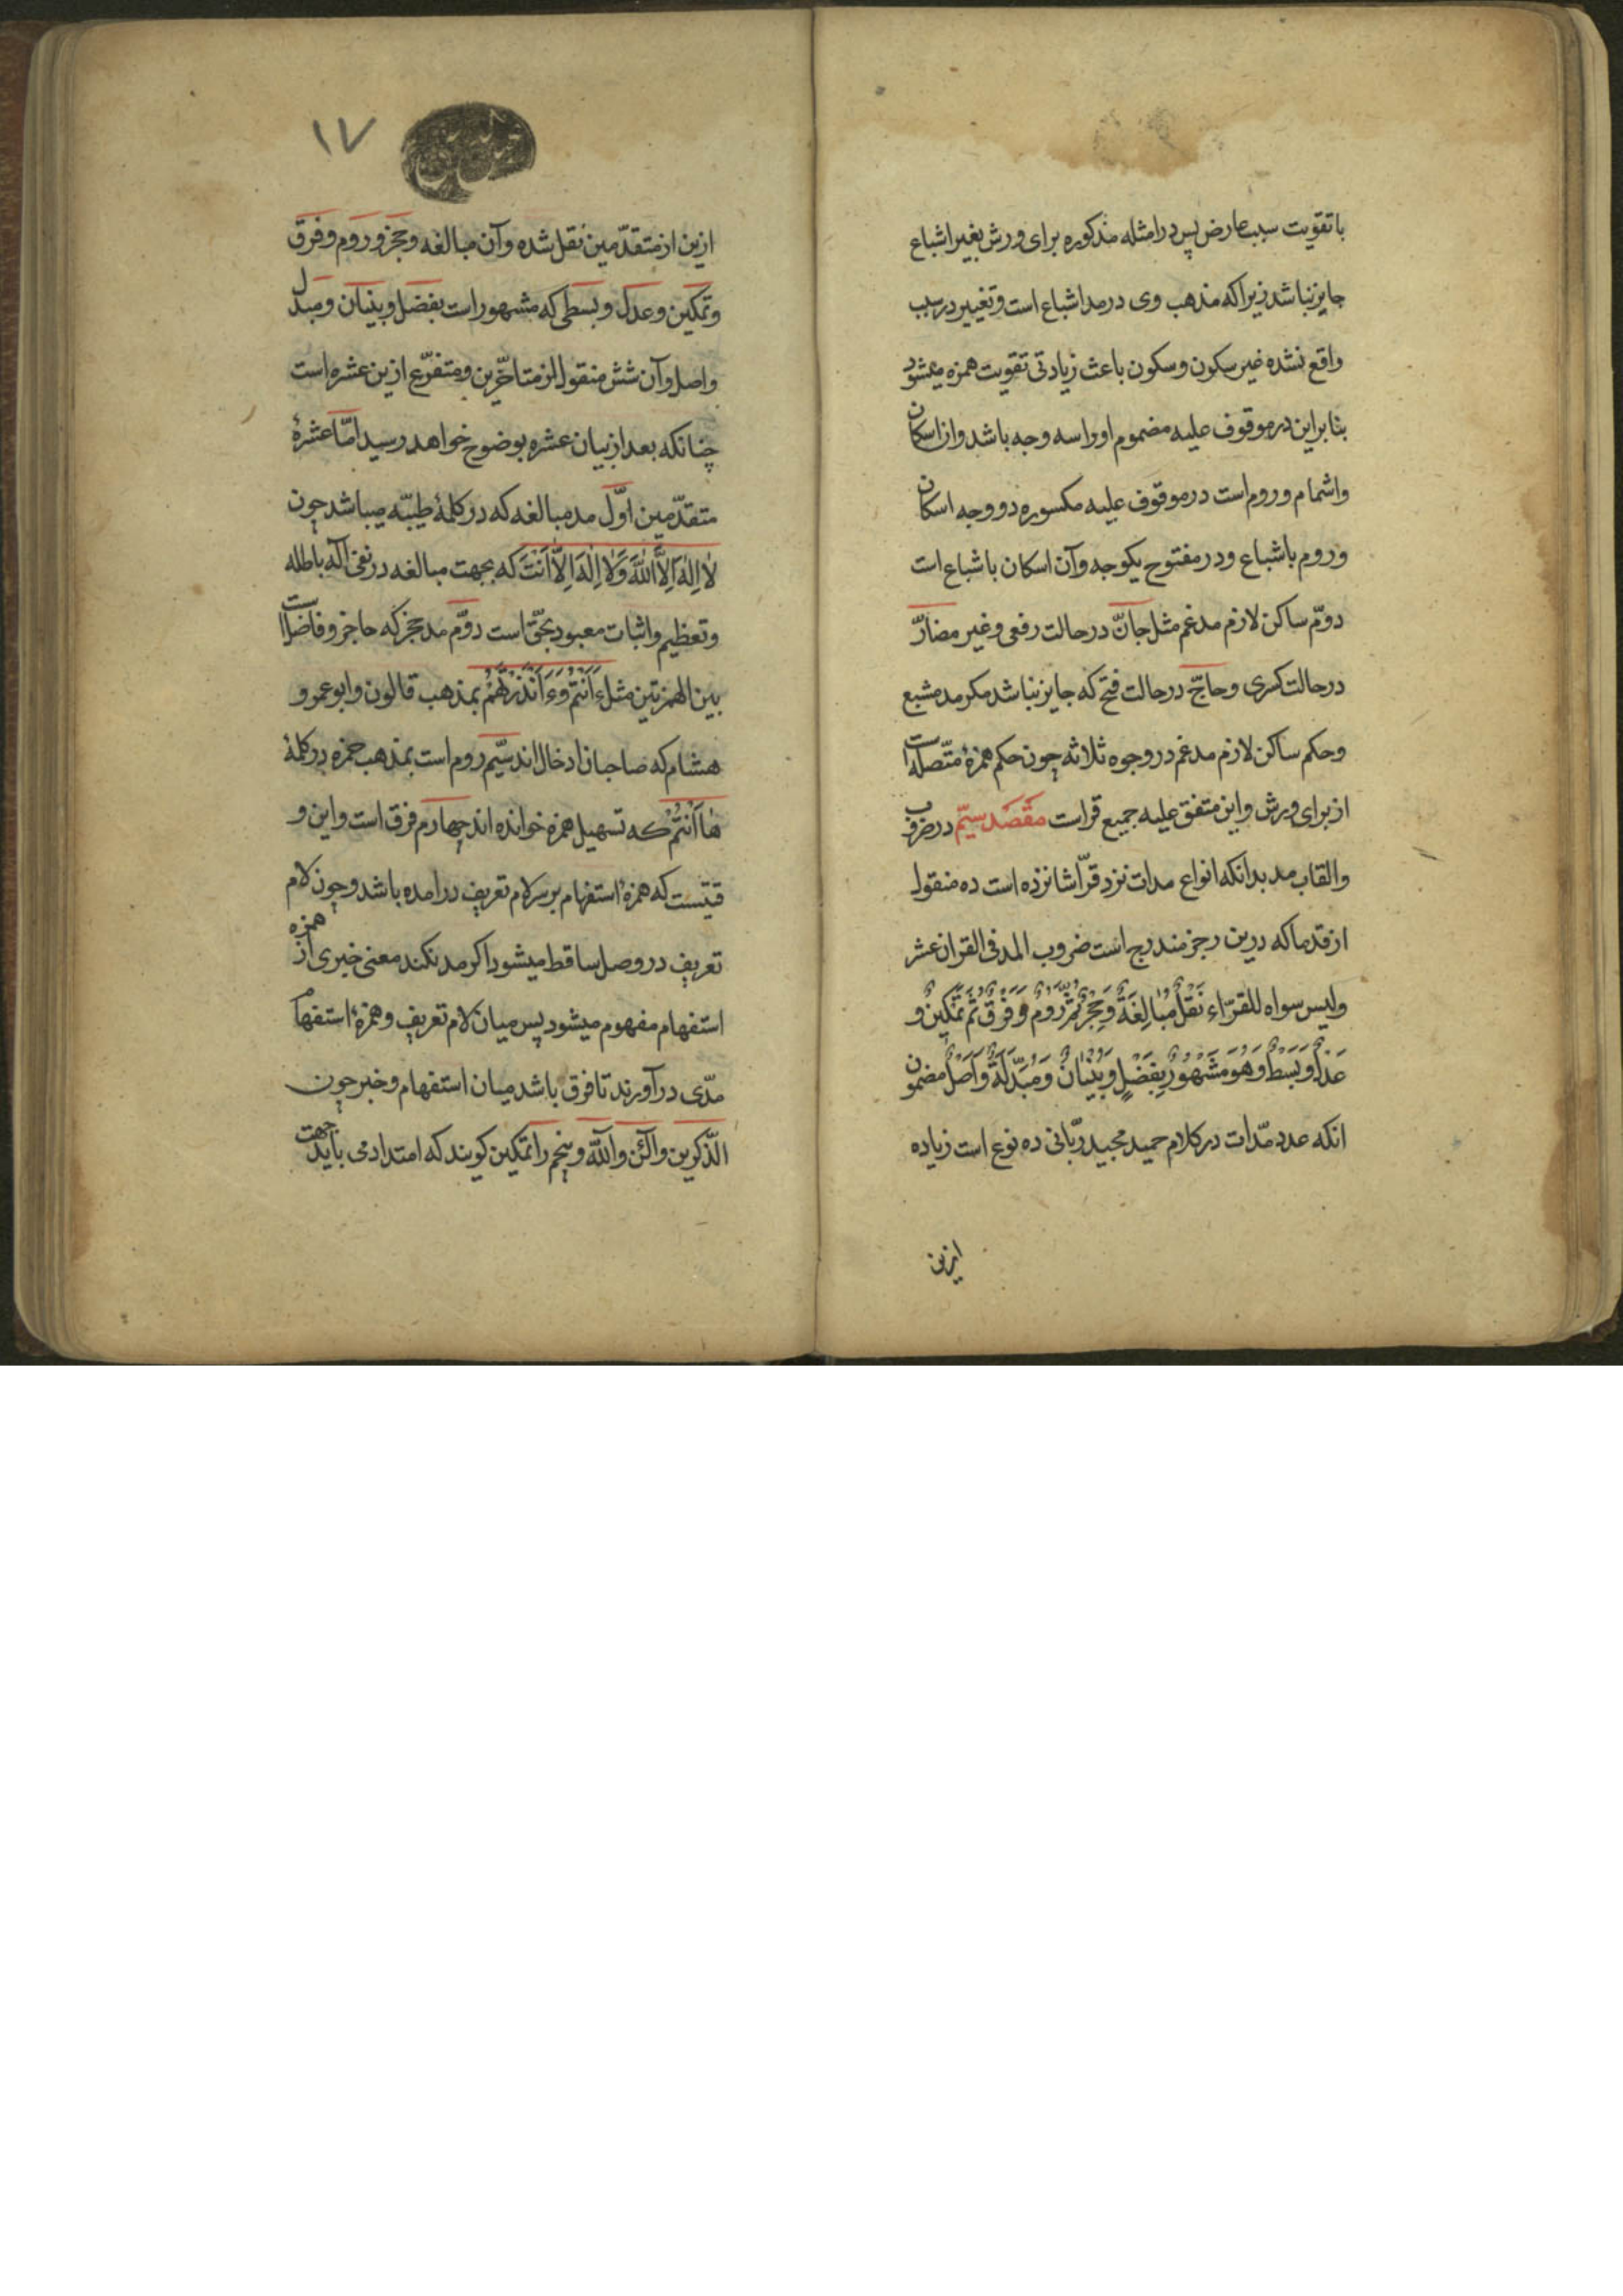 با تقویت سبب عارض پس در امثله مذکوره برای ورش بغیر اشباع
جایز نباشد زیرا که مذهب وی در مد اشباع است و تغییر در سبب
واقع نشده غیر سکون و سکون باعث زیادتی تقویت همزه میشود
بنا براین در موقوف علیه مضموم او را سه وجه باشد و از اسکان
واشمام و روم است در موقوف علیه مکسوره دو وجه اسکان
وروم باشباع ودر مفتوح یکوجه وآن اسکان باشباع است
دوّم ساکن لازم مدغم مثل جانّ در حالت رفعی وغیر مضارّ
در حالت کسری و حاجّ در حالت فتح که جایز نباشد مکر مد مشبع
وحکم ساکن لازم مدغم در وجوه ثلاثه چون حکم همزهٔ متّصله است
از برای ورش واین متفق علیه جمیع قراست مقصد سیّم در ضروب
والقاب مد بدانکه انواع مدات نزد قرّا شانزده است ده منقول
از قدما که درین رجز مندرج است ضروب المد فی القران عشر
ولیس سواه للقرّاء نَقْلٌ مُبٰالِغَةٌ وَحَجْزٌ ثُمَّ رَوْمٌ وَفَرْقٌ ثُمَّ تَمْكِينٌ وَ
عَدْلٌ وَبَسْطٌ وَهُوَ مَشْهُورٌ بِفَضْلٍ وَبُنْيٰانٌ وَمُبَدَّلَةٌ وَاَصْلٌ مضمون
انکه عدد مدّات در کلام حمید مجید ربّانی ده نوع است زیاده
ازین
١٧
ازین از متقدّمین نقل شده وآن مبالغه وحجز وروم وفرق
وتمکین وعدل وبسطی که مشهور است بفضل وبنیان ومبدل
واصل وآن شش منقول از متاخّرین و متفرّع ازین عشره است
چنانکه بعد از بیان عشره بوضوح خواهد رسید امّا عشرهٔ
متقدّمین اوّل مد مبالغه که در کلمهٔ طیّبه میباشد چون
لٰا اِلٰهَ اِلاَّ اللّٰهُ وَلٰا اِلٰهَ اِلاّٰ اَنْتَ که بجهت مبالغه در نفی آله باطله
وتعظیم واثبات معبود بحقّ است دوّم مد حجز که حاجز و فاضل است
بین الهمزتین مثل ءَاَنْتُمْ وَءَاَنْذَرْتَهُمْ بمذهب قالون وابو عمرو و
هشام که صاحبان ادخال اند سیّم روم است بمذهب حمزه در کلمهٔ
هٰا اَنْتُمْ که تسهیل همزه خوانده اند چهارم فرق است واین و
قتیست که همزهٔ استفهام بر سر لام تعریف درامده باشد وچون لام
تعریف در وصل ساقط میشود اکر مد نکند معنی خبری از همزه
استفهام مفهوم میشود پس میان لام تعریف وهمزهٔ استفهام
مدّی در آورند تا فرق باشد میان استفهام وخبر چون
الذّکرین وآلئن وآللّه وپنجم را تمکین کویند که امتدادمی باید جهت